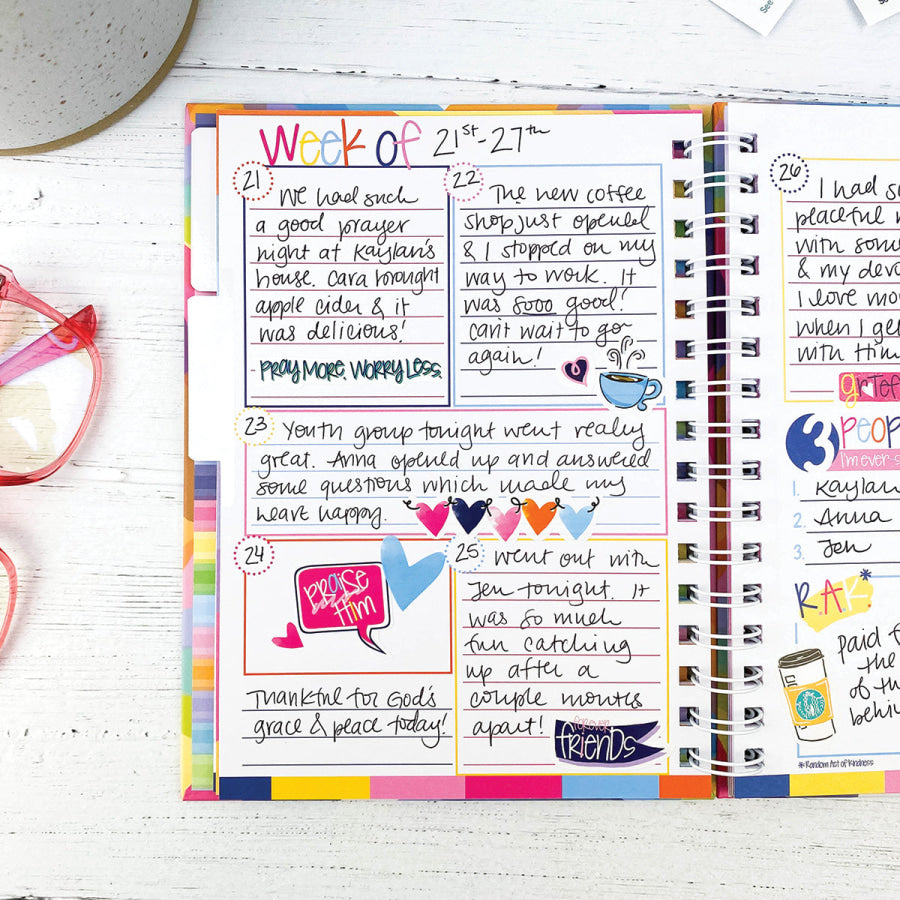 See
Week of 21st-27th
21
We had such
a good prayer
night at Kaylan's
house. Cara brought
apple cider & it
was delicious!
PRAY MORE. WORRY LESS.
22
The new coffee
shop just opened
& I stopped on my
way to work. It
was sooo good!
can't wait to go
again!
23
Youth group tonight went really
great. Anna opened up and answered
some questions which made my
heart happy.
24
PRAISE
Him
Thankful for God's
grace & peace today!
25
Went out with
Jen tonight. It
was so much
fun catching
up after a
couple months
apart!
forever
friends
26
I had so
peaceful
with som
& my devo
I love mo
when I get
with Him
grtef
3 PEOP
I'm ever-s
1. Kaylan
2. Anna
3. Jen
R.A.K*
Paid f
the
of th
behin
*Random Act of Kindness